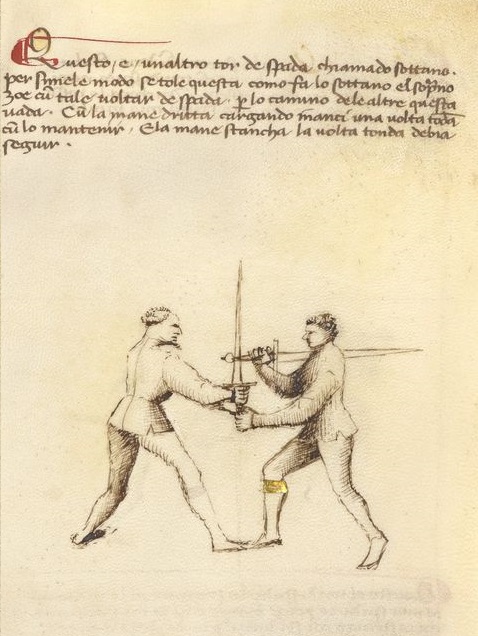 Questo, e, unaltro tor de spada chiamado sottano.
per simele modo se tole questa como fa lo sottano el sop̃no
zoe cū tale voltar de spada. ꝑ lo camino dele altre questa
vada. Cū la mane dritta cargando inanci una volta toda
cū lo mantenir. E la mane stancha la volta tonda debia
seguir.